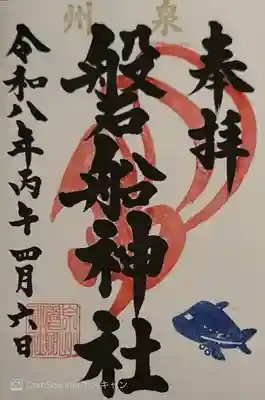 泉州
奉拝
磐船神社
令和八年丙午四月六日
CamScannerでスキャン